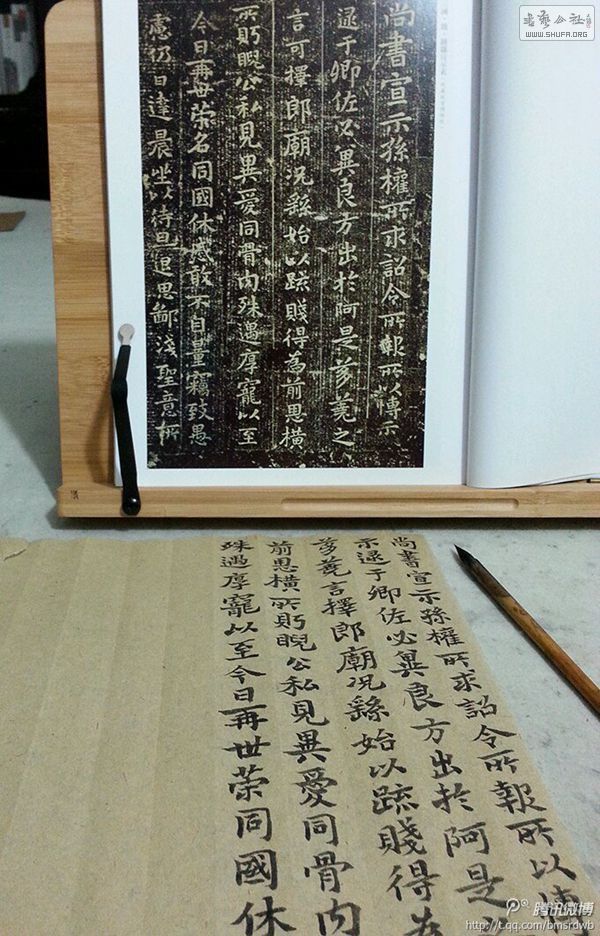 書藝公社
WWW.SHUFA.ORG
尚書宣示孫權所求詔令所報所以博示
逮于卿佐必冀良方出於阿是芻蕘之
言可擇郎廟況繇始以疏賤得為前恩橫
所盱睨公私見異愛同骨肉殊遇厚寵以至
今日再世榮名同國休慼敢不自量竊致愚
慮仍日達晨坐以待旦退思鄙淺聖意所
尚書宣示孫權所求詔令所報所以博
示逮于卿佐必冀良方出於阿是
芻蕘言擇郎廟況繇始以疏賤得為
前恩橫所盱睨公私見異愛同骨肉
殊遇厚寵以至今日再世榮同國休
腾讯微博
http://t.qq.com/bmsrdwb